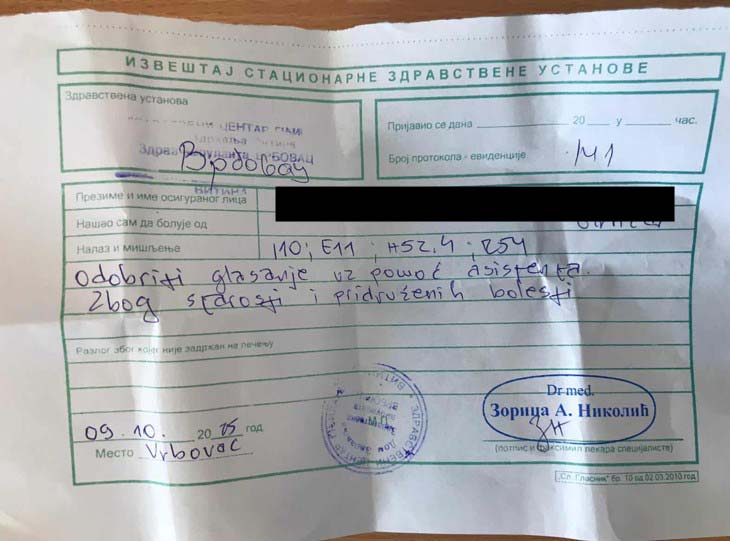 ИЗВЕШТАЈ СТАЦИОНАРНЕ ЗДРАВСТВЕНЕ УСТАНОВЕ
Здравствена установа
ЦЕНТАР
Врбовац
ВИТИНА
Пријавио се дана 20 у час.
Број протокола - евиденције 141
Презиме и име осигураног лица
Нашао сам да болује од
Налаз и мишљење I10; E11; H52,4; R54
Odobriti glasanje uz pomoć asistenta.
Zbog starosti i pridruženih bolesti
Разлог због којег није задржан на лечењу
Dr med.
Зорица А. Николић
ЗН
(потпис и факсимил лекара специјалисте)
09. 10. 2025 год
Место Vrbovac
ЗДРАВСТВЕНИ ЦЕНТАР
„Сл. Гласник" бр. 10 од 02.03.2010.год